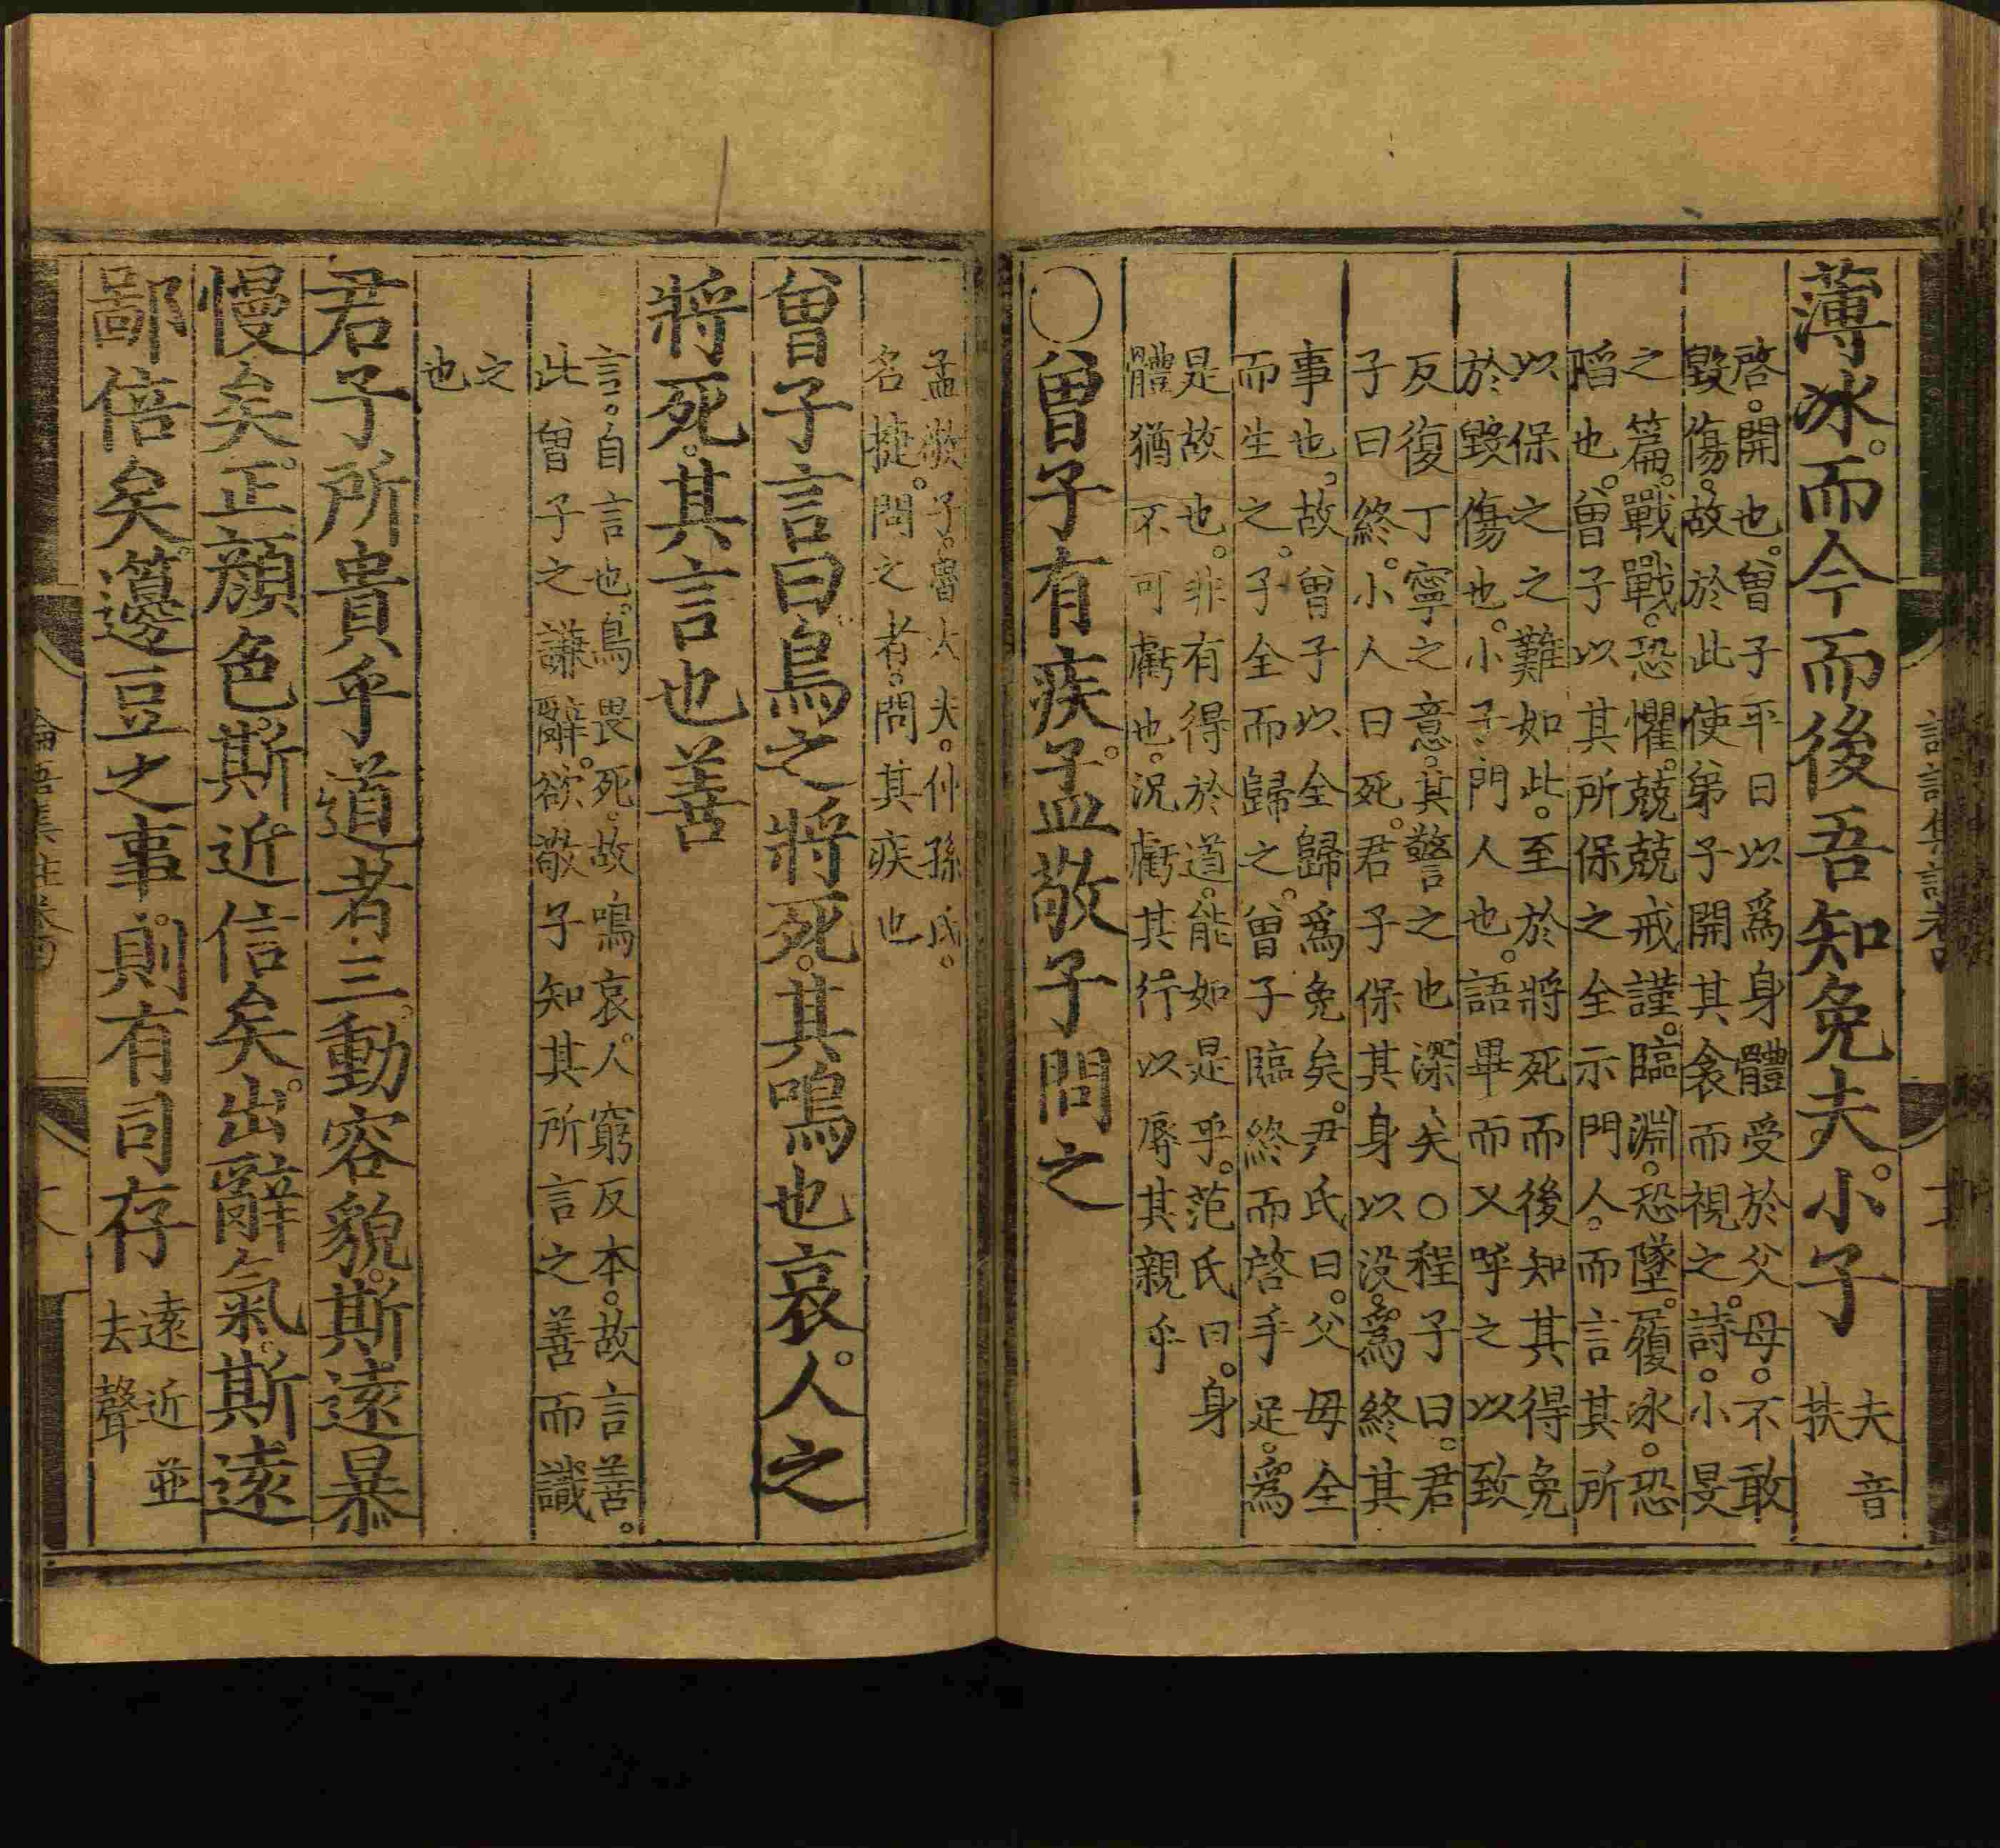 薄冰。而今而後吾知免夫。小子
夫音
扶
啓。開也。曾子平日以爲身體受於父母。不敢
毀傷。故於此使弟子開其衾而視之。詩。小旻
之篇。戰戰。恐懼。兢兢戒謹。臨淵。恐墜。履冰。恐
陷也。曾子以其所保之全示門人。而言其所
以保之之難如此。至於將死而後知其得免
於毀傷也。小子門人也。語畢而又呼之以致
反復丁寧之意。其警之也深矣○程子曰。君
子曰終。小人曰死。君子保其身以沒。爲終其
事也。故曾子以全歸爲免矣。尹氏曰。父母全
而生之。子全而歸之。曾子臨終而啓手足。爲
是故也。非有得於道。能如是乎。范氏曰。身
體猶不可虧也。況虧其行以辱其親乎
○曾子有疾。孟敬子問之
孟敬子。魯大夫。仲孫氏。
名捷。問之者。問其疾也
曾子言曰鳥之將死。其鳴也哀。人之
將死。其言也善
言。自言也。鳥畏死。故鳴哀。人窮反本。故言善。
此曾子之謙辭。欲敬子知其所言之善而識
之
也
君子所貴乎道者三。動容貌。斯遠暴
慢矣。正顏色。斯近信矣。出辭氣。斯遠
鄙倍矣。籩豆之事。則有司存
遠近並
去聲
論語集註卷四